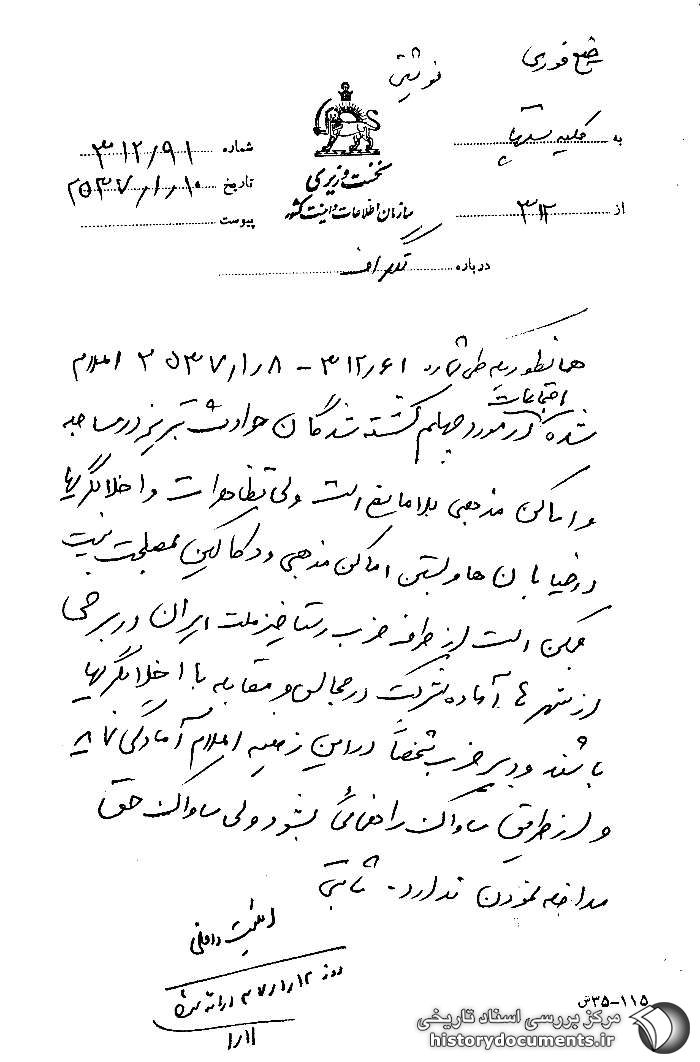 خیلی فوری
به کلیه
از ۳۱۲
نخست وزیری
سازمان اطلاعات و امنیت کشور
شماره ۳۱۲/۹۱
تاریخ ۲۵۳۷/۱/۱۰
پیوست
درباره تلگراف
همانطوریکه طی شماره ۳۱۲/۶۱ - ۲۵۳۷/۱/۸ اعلام
شده اجتماعات در مورد چهلم کشته شدگان حوادث تبریز در مساجد
و اماکن مذهبی بلامانع است ولی تظاهرات و اخلالگریها
در خیابان ها و بستن اماکن مذهبی و دکاکین بمصلحت نیست
ممکن است از طرف حزب رستاخیز ملت ایران در برخی
از شهرها آماده شرکت در مجالس و مقابله با اخلالگریها
باشند و دبیر حزب شخصاً در این زمینه اعلام آمادگی نماید
و از طریق ساواک راهنمائی بشود ولی ساواک حق
مداخله نمودن ندارد - ثابتی
امنیت داخلی
روز ۳۷/۱/۱۲ ارائه شود
۱/۱۱
۱۱۵-۳۵ش
مرکز بررسی اسناد تاریخی
historydocuments.ir